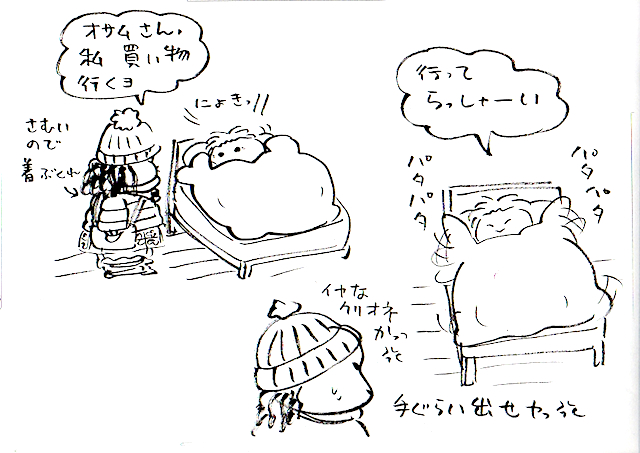 オサムさん、
私 買い物
行くヨ
にょきっ!!
さむい
ので
着ぶくれ
行って
らっしゃーい
パタパタ
パタパタ
イヤな
クリオネ
かっつ
手ぐらい出せやっ